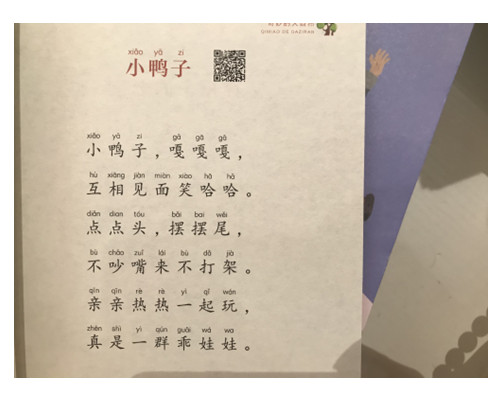 QIMIAO DE DAZIRAN
xiǎo yā zi
小鸭子
xiǎo yā zi gā gā gā
小鸭子，嘎嘎嘎，
hù xiāng jiàn miàn xiào hā hā
互相见面笑哈哈。
diǎn dian tóu bǎi bai wěi
点点头，摆摆尾，
bù chǎo zuǐ lái bù dǎ jià
不吵嘴来不打架。
qīn qīn rè rè yì qǐ wán
亲亲热热一起玩，
zhēn shì yì qún guāi wá wa
真是一群乖娃娃。